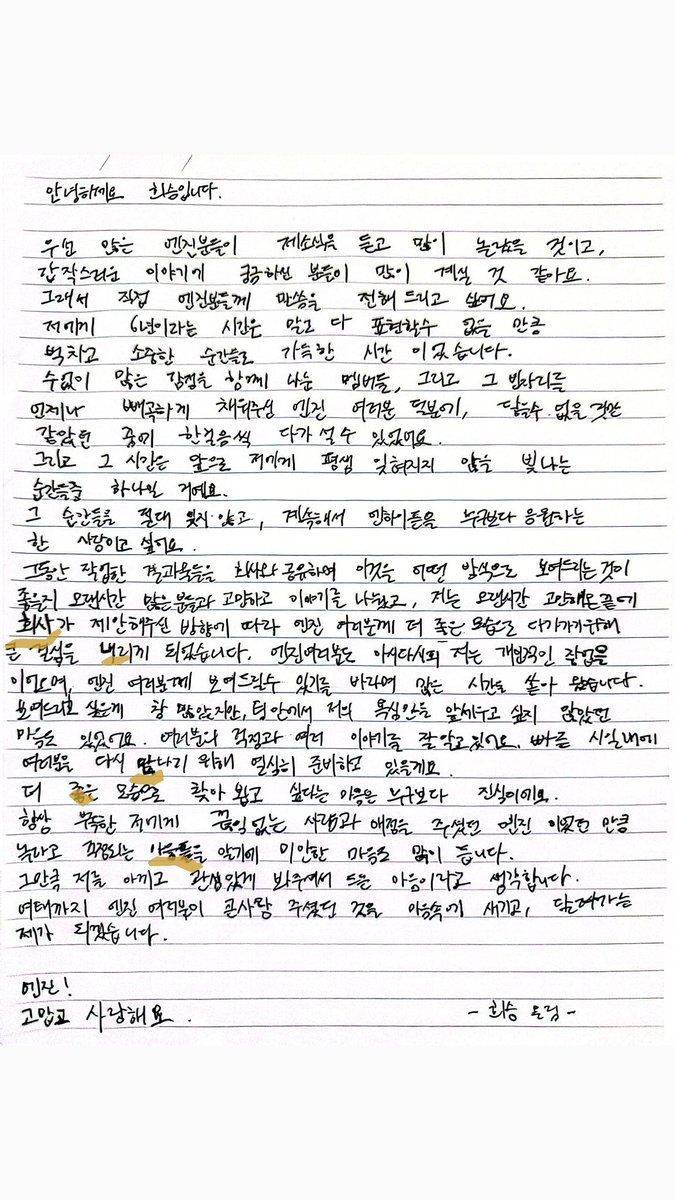 안녕하세요 희승입니다.
우선 많은 엔진분들이 제소식을 듣고 많이 놀랐을 것이고,
갑작스러운 이야기에 궁금하신 분들이 많이 계실 것 같아요.
그래서 직접 엔진분들께 말씀을 전해 드리고 싶어요.
저에게 6년이라는 시간은 말로 다 표현할수 없을 만큼
벅차고 소중한 순간들로 가득한 시간 이었습니다.
수없이 많은 감정을 함께 나눈 멤버들, 그리고 그 빈자리를
언제나 빼곡하게 채워주신 엔진 여러분 덕분에, 닿을수 없을 것만
같았던 꿈에 한걸음씩 다가 설 수 있었어요.
그리고 그 시간은 앞으로 저에게 평생 잊혀지지 않을 빛나는
순간들중 하나일 거예요.
그 순간들을 절대 잊지 않고, 계속해서 엔하이픈을 누구보다 응원하는
한 사람이고 싶어요.
그동안 작업한 결과물들을 회사와 공유하며 이것을 어떤 방식으로 보여드리는것이
좋을지 오랜시간 많은 분들과 고민하고 이야기를 나눴고, 저는 오랜시간 고민해온 끝에
회사가 제안해주신 방향에 따라 엔진 여러분께 더 좋은 모습으로 다가가기위해
큰 결심을 내리게 되었습니다. 엔진여러분도 아시다시피 저는 개인적인 작업을
이어오며, 엔진 여러분께 보여드릴수 있기를 바라며 많은 시간을 쏟아 왔습니다.
보여드리고 싶은게 참 많았지만, 팀 안에서 저의 욕심만을 앞세우고 싶지 않았던
마음도 있었어요. 여러분의 걱정과 여러 이야기를 잘 알고 있어요. 빠른 시일내에
여러분을 다시 만나기 위해 열심히 준비하고 있을게요.
더 좋은 모습으로 찾아 뵙고 싶다는 마음은 누구보다 진심이에요.
항상 부족한 저에게 끊임 없는 사랑과 애정을 주셨던 엔진 이었던 만큼
놀라고 걱정되는 마음들을 알기에 미안한 마음도 많이 듭니다.
그만큼 저를 아끼고 관심있게 봐주셔서 드는 마음이라고 생각합니다.
여태까지 엔진 여러분이 큰사랑 주셨던 것을 마음속에 새기고, 달려가는
제가 되겠습니다.
엔진!
고맙고 사랑해요.
- 희승 올림 -